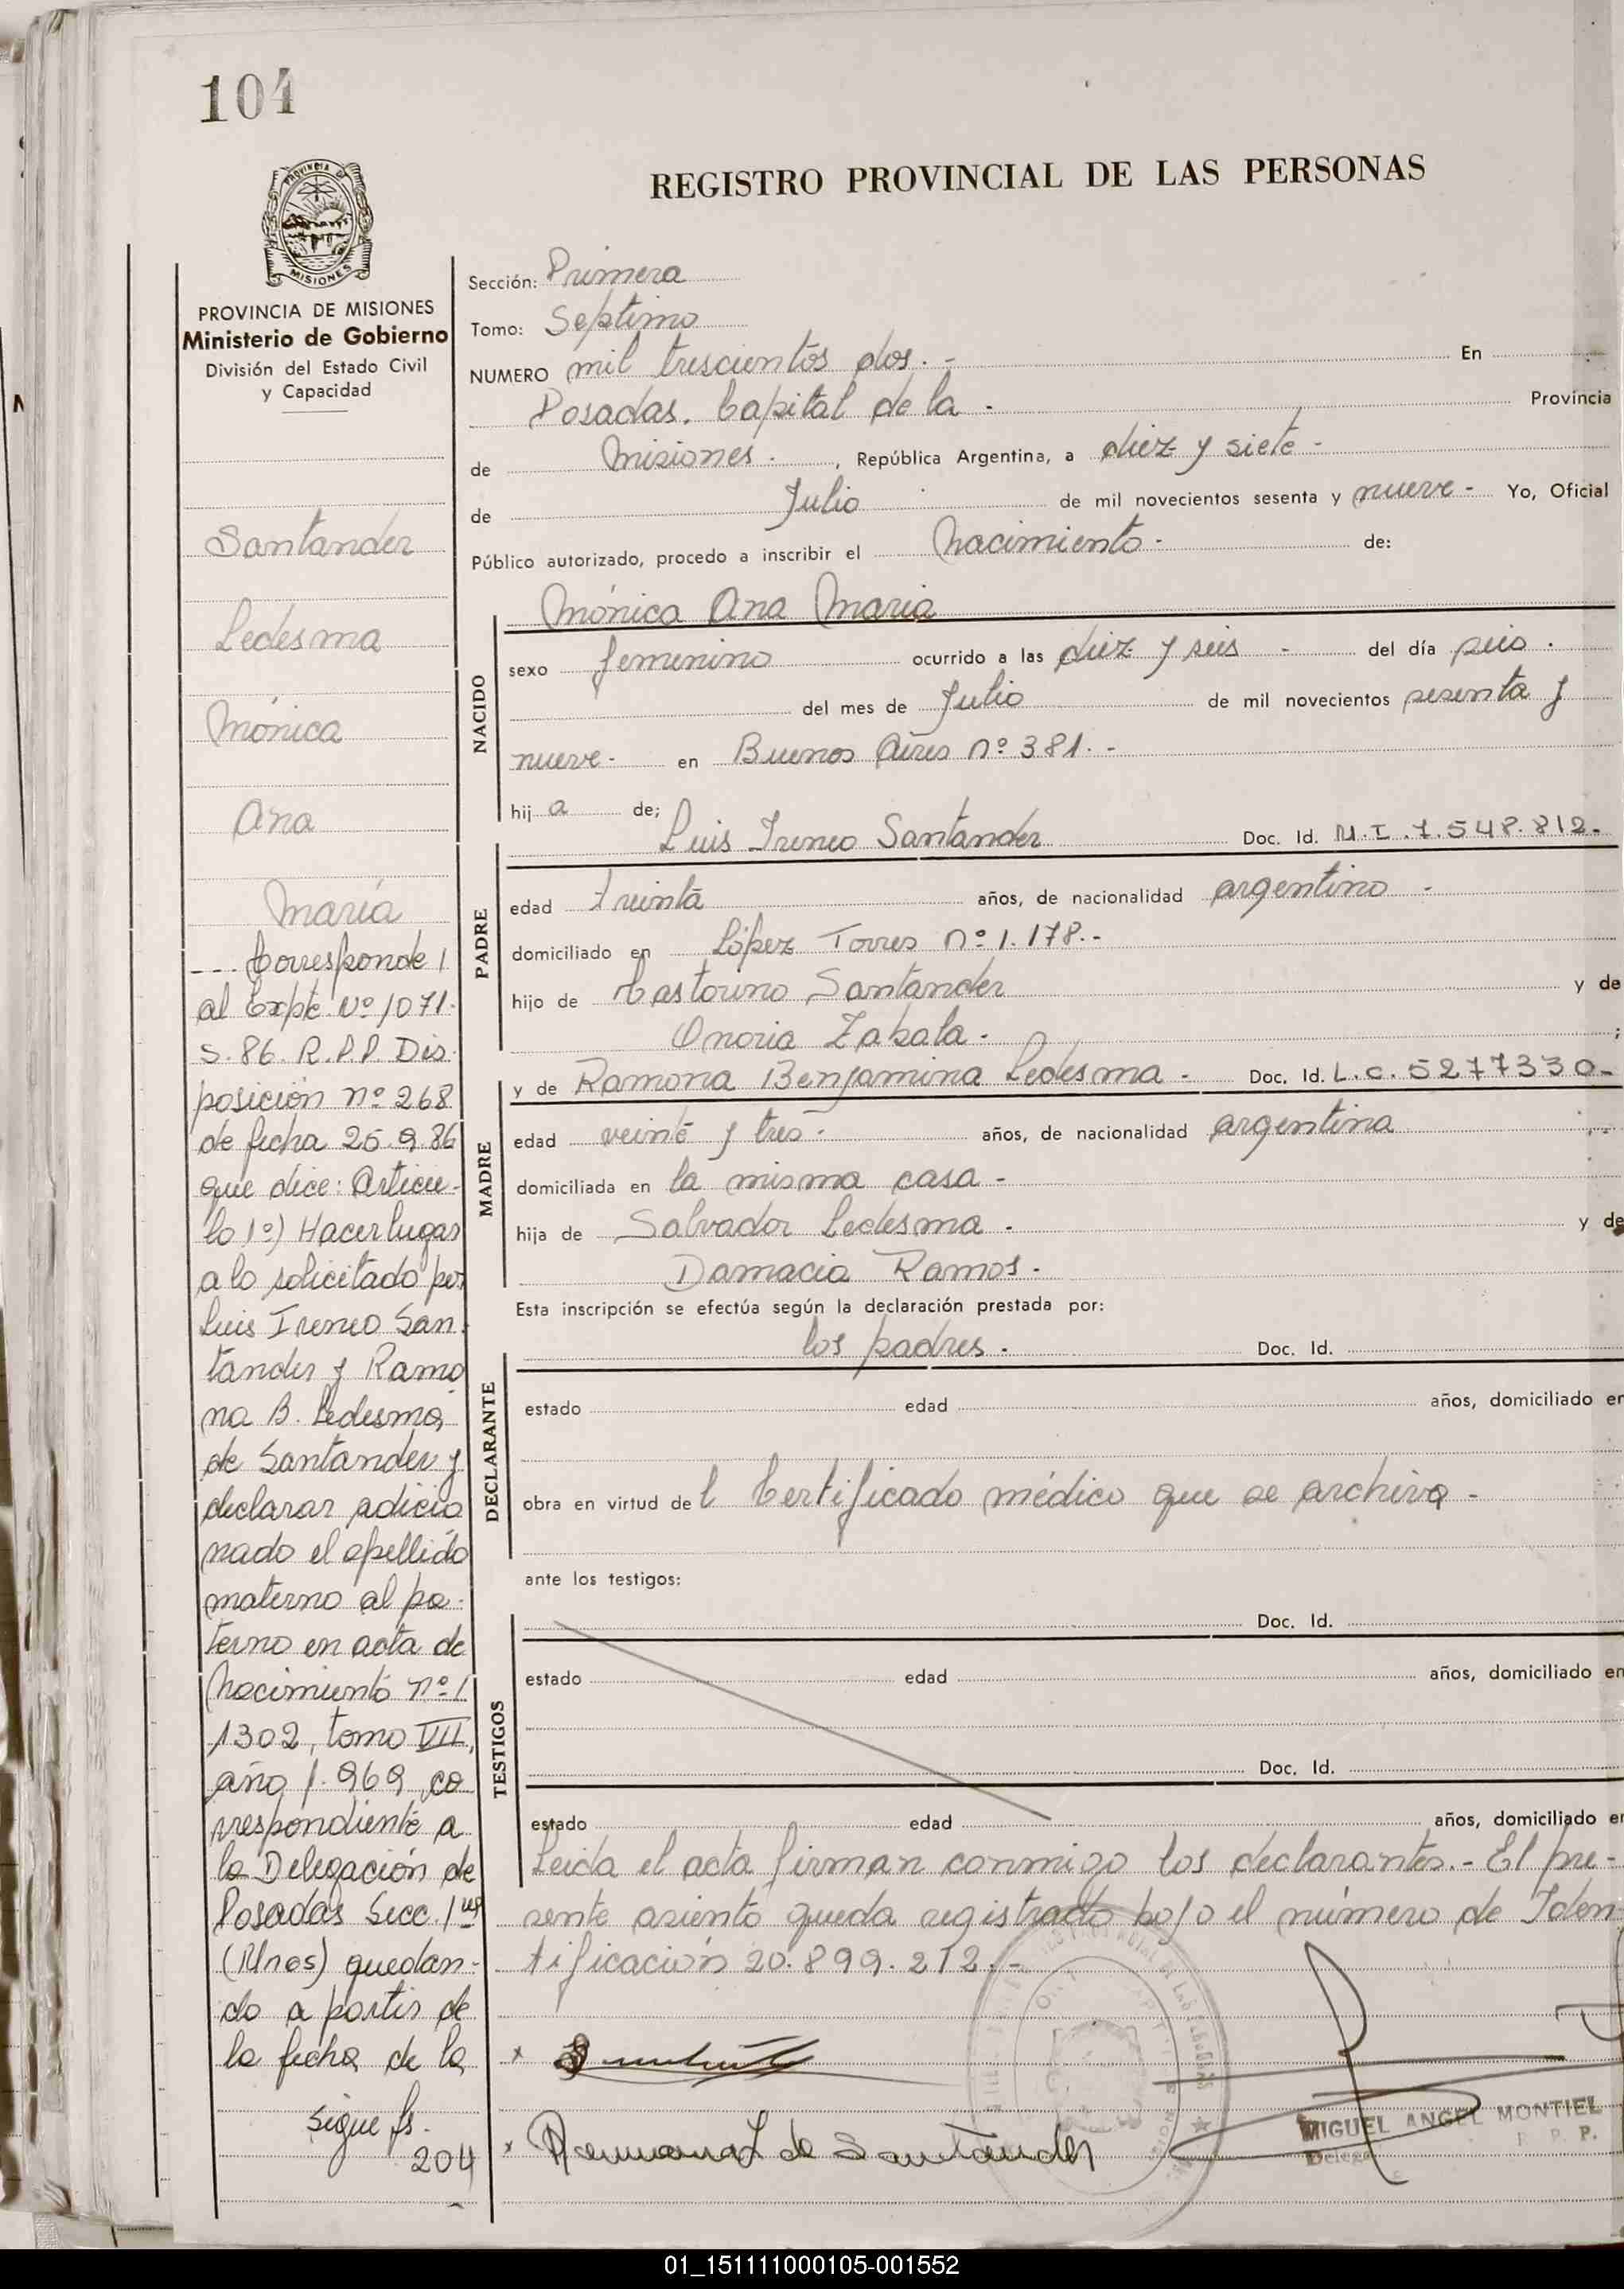 104
PROVINCIA DE
MISIONES
PROVINCIA DE MISIONES
Ministerio de Gobierno
División del Estado Civil
y Capacidad
Santander
Ledesma
Mónica
Ana
María
--- Corresponde
al Expte. Nº 1071-
S-86. R.P.P. Dis-
posición nº 268
de fecha 25.9.86
que dice: Artícu-
lo 1º) Hacer lugar
a lo solicitado por
Luis Ireneo San-
tander y Ramo
na B. Ledesma
de Santander y
declarar adicio
nado el apellido
materno al pa-
terno en acta de
Nacimiento nº
1302, tomo VII,
año 1.969 co
rrespondiente a
la Delegación de
Posadas Secc. 1ra
(Mnes) quedan-
do a partir de
la fecha de la
sigue fs.
204
REGISTRO PROVINCIAL DE LAS PERSONAS
Sección: Primera
Tomo: Septimo
NUMERO mil trescientos dos.- En
Posadas. Capital de la - Provincia
de Misiones. , República Argentina, a diez y siete -
de Julio de mil novecientos sesenta y nueve - Yo, Oficial
Público autorizado, procedo a inscribir el Nacimiento - de:
Mónica Ana Maria
NACIDO
sexo femenino ocurrido a las diez y seis - del día seis .
del mes de Julio de mil novecientos sesenta y
nueve - en Buenos Aires nº 381.-
hij a de;
Luis Ireneo Santander Doc. Id. M.I.7.548.812-
PADRE
edad treinta años, de nacionalidad argentino -
domiciliado en López Torres nº 1.178.-
hijo de Castorino Santander y de
Onoria Zabala - ;
y de Ramona Benjamina Ledesma - Doc. Id. L.C. 5277330-
MADRE
edad veinte y tres - años, de nacionalidad argentina
domiciliada en la misma casa -
hija de Salvador Ledesma - y de
Damacia Ramos -
Esta inscripción se efectúa según la declaración prestada por:
los padres - Doc. Id.
DECLARANTE
estado edad años, domiciliado en
obra en virtud de l Certificado médico que se archiva -
ante los testigos:
Doc. Id.
TESTIGOS
estado edad años, domiciliado en
Doc. Id.
estado edad años, domiciliado en
Leida el acta firman conmigo los declarantes.- El pre-
sente asiento queda registrado bajo el número de Iden
tificación 20.899.212.-
x
x Ramona L de Santander
MIGUEL ANGEL MONTIEL
R. P. P.
01_151111000105-001552